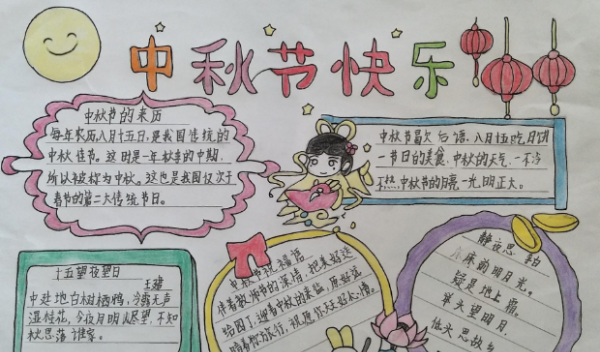 中秋节快乐
中秋节的来历
每年农历八月十五日,是我国传统的
中秋佳节。这时是一年秋季的中期,
所以被称为中秋。这也是我国仅次于
春节的第二大传统节日。
中秋节歇后语:八月十五吃月饼
一节日的美食。中秋的天气,一不冷
不热。中秋节的月亮一光明正大。
十五望夜望日
王建
中庭地白树栖鸦,冷露无声
湿桂花,今夜月明人尽望,不知
秋思落谁家。
中秋节祝福语
静夜思 李白
床前明月光。
疑是地上霜。
举头望明月,
低头思故乡